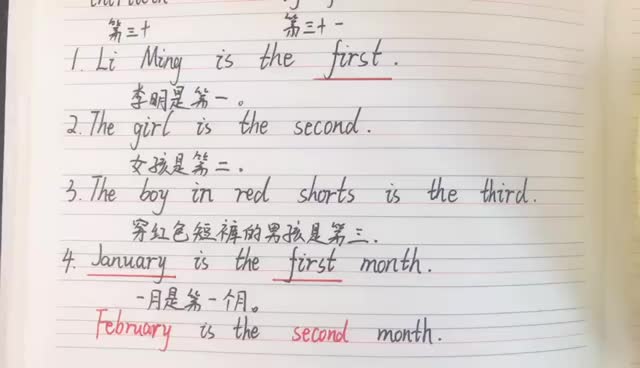 第三十 第三十一
1. Li Ming is the first.
李明是第一。
2. The girl is the second.
女孩是第二.
3. The boy in red shorts is the third.
穿红色短裤的男孩是第三.
4. January is the first month.
一月是第一个月。
February is the second month.